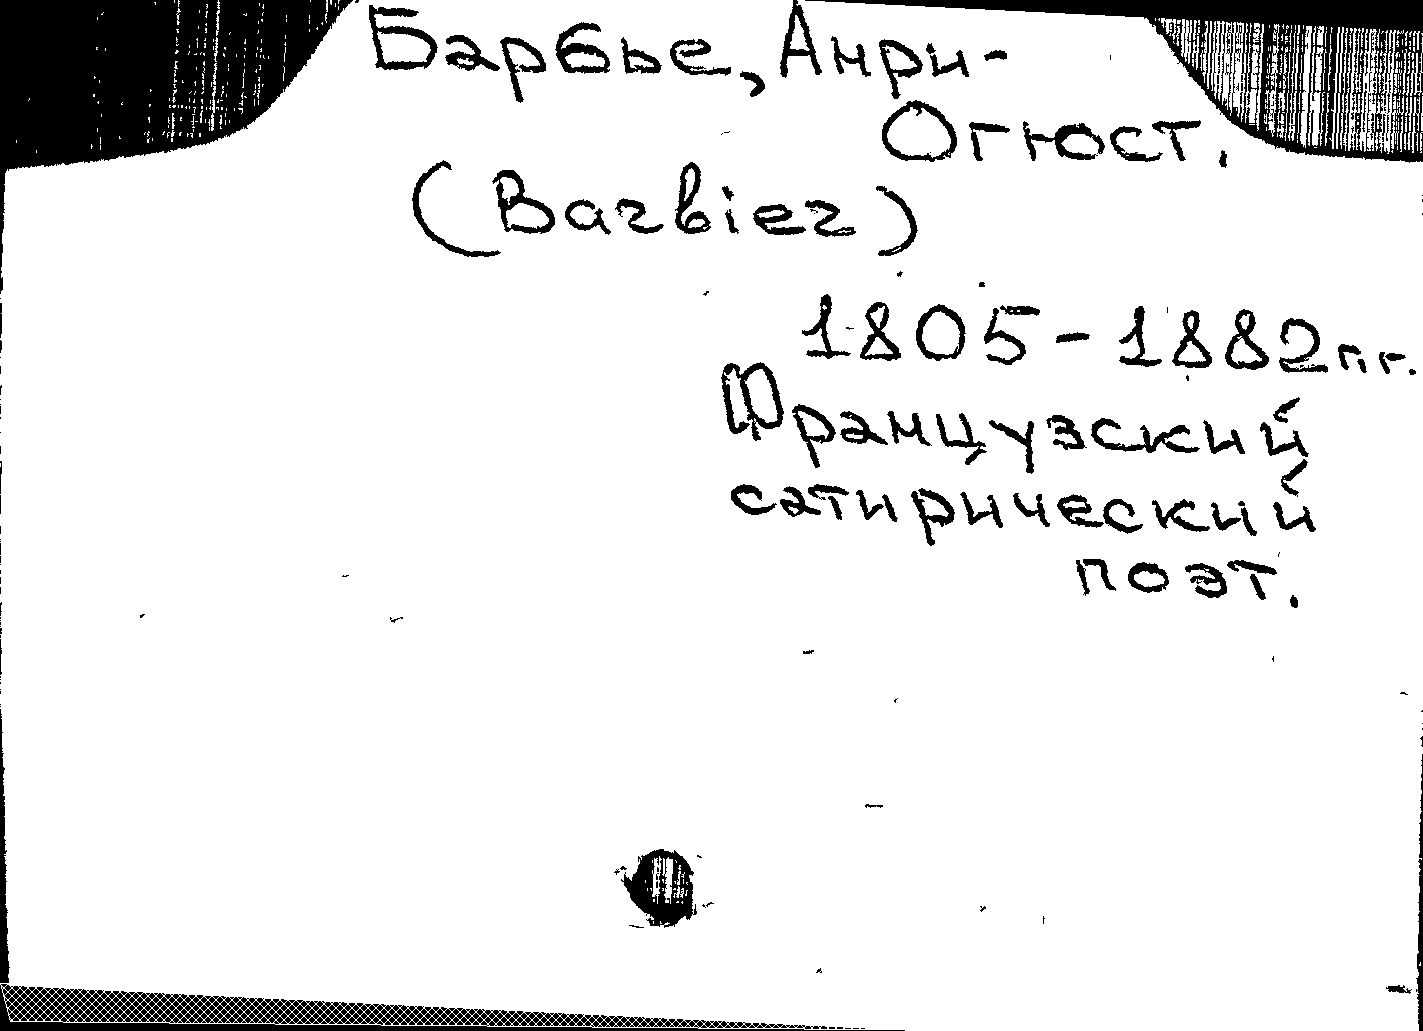 Барбье, Анри-
Огюст.
(Barbier)
1805-1882 гг.
Французский
сатирический
поэт.